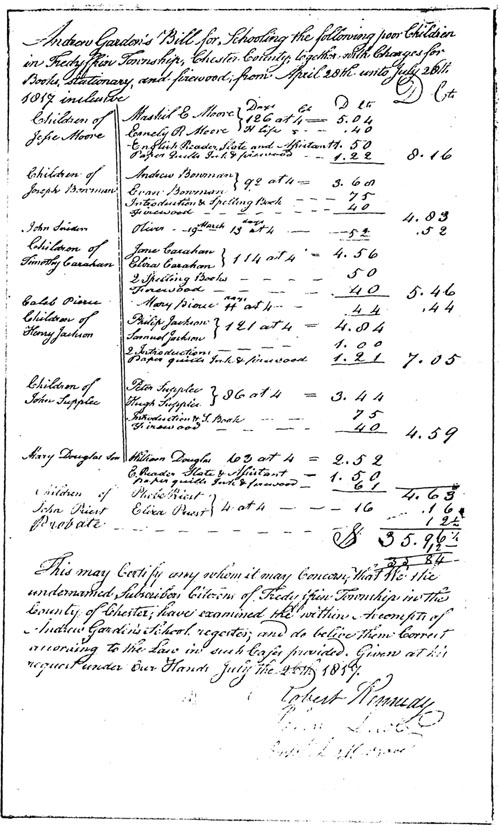 Andrew Garden's Bill for Schooling the following poor Children
in Tredyffrin Township, Chester County, together with Charges for
Books, Stationary, and firewood, from April 28th unto July 26th
1817 inclusive D Cts
Children of Maskil E Moore Days Ct D Cts
Jesse Moore 126 at 4 = 5.04
Emely R Moore .40
English Reader, Slate and Assistant 1.50
Paper Quills Ink & firewood 1.22 8.16
Children of Andrew Bowman
Joseph Bowman Evan Bowman } 92 at 4 = 3.68
Introduction & Spelling Book 75
Firewood 40 4.83
John Sniden Oliver 19th March 13 days at 4 52 .52
Children of Jane Carahan
Timothy Carahan Eliza Carahan } 114 at 4 = 4.56
2 Spelling Books 50
Firewood 40 5.46
Caleb Pierce Mary Pierce 11 days at 4 44 .44
Children of Philip Jackson
Henry Jackson Samuel Jackson } 121 at 4 = 4.84
2 Introductions 1.00
Paper quills Ink & firewood 1.21 7.05
Children of Peter Supplee
John Supplee Hugh Supplee } 86 at 4 = 3.44
Introduction & S. Book 75
Firewood 40 4.59
Mary Douglas Son William Douglas 63 at 4 = 2.52
E. Reader Slate & Assistant 1.50
paper quills Ink & firewood 61 4.63
Children of Phebe Priest
John Priest Eliza Priest } 4 at 4 16 .16
Probate 12½
$ 35.96½
12
35 84
This may Certify any whom it may Concern, that We the
undernamed Subscribors Citizens of Tredyffrin Township in the
County of Chester, have examined the within Accompts of
Andrew Garden's School register, and do belive them Correct
according to the Law in such Cases provided. Given at his
request under Our Hands July the 26th 1817
Robert Kennedy
John